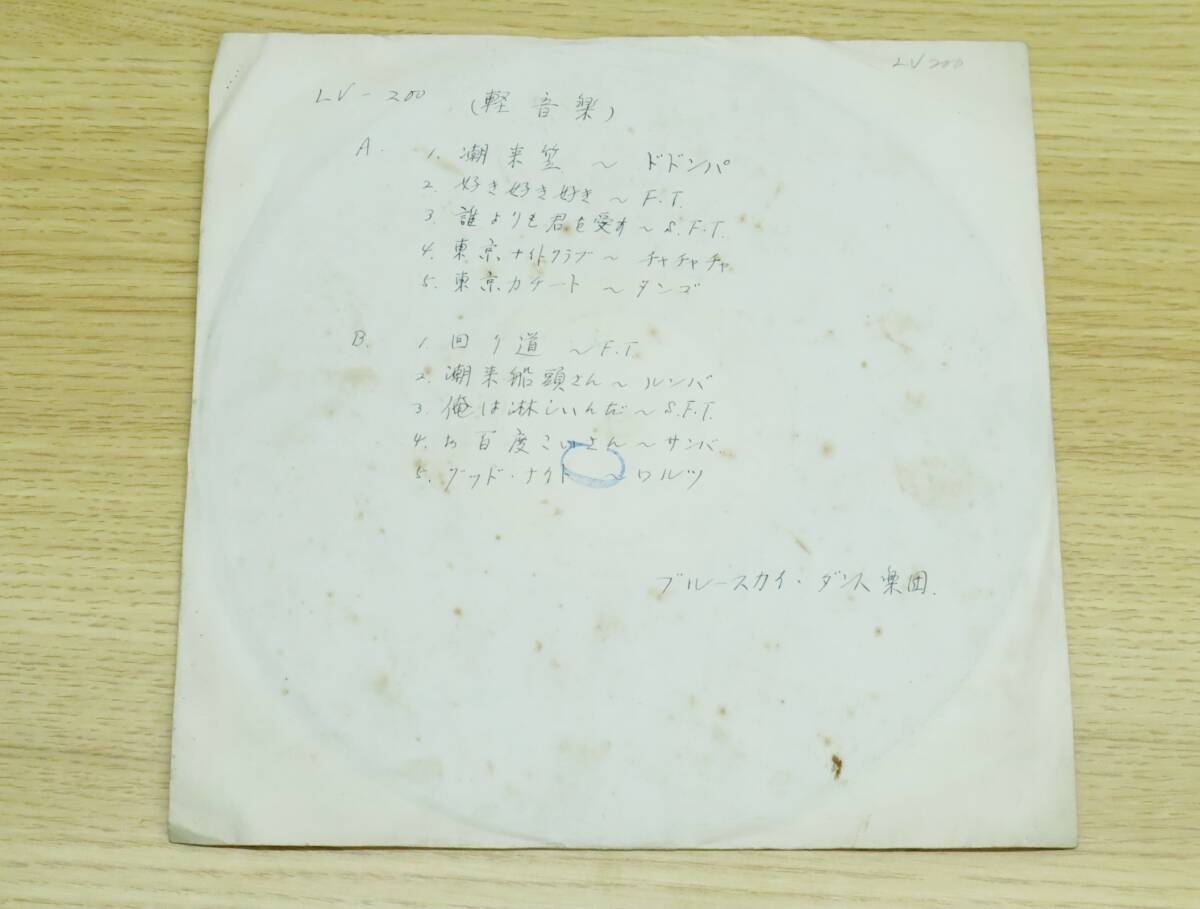 LV200
LV-200 (軽音楽)
A. 1. 潮来笠 ~ ドドンパ
2. 好き好き好き ~ F.T.
3. 誰よりも君を愛す ~ S.F.T.
4. 東京ナイトクラブ ~ チャチャチャ
5. 東京カチート ~ タンゴ
B. 1. 回り道 ~ F.T.
2. 潮来船頭さん ~ ルンバ
3. 俺は淋しいんだ ~ S.F.T.
4. お百度こいさん ~ サンバ
5. グッド・ナイト ~ ワルツ
ブルースカイ・ダンス楽団.